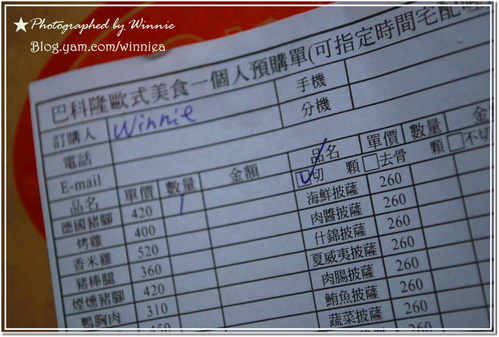 ★Photographed by Winnie
Blog.yam.com/winniza
巴科隆歐式美食一個人預購單(可指定時間宅配
訂購人 Winnie 手機
電話 分機
E-mail
品名 單價 數量 金額 品名 單價 數量 金
德國豬腳 420 1 ☑切 顆 □去骨 顆 □不切
烤雞 400 海鮮披薩 260
香米雞 520 肉醬披薩 260
豬棒腿 360 什錦披薩 260
煙燻豬腳 420 夏威夷披薩 260
鴨胸肉 310 肉腸披薩 260
鮪魚披薩 260
蔬菜披薩 260